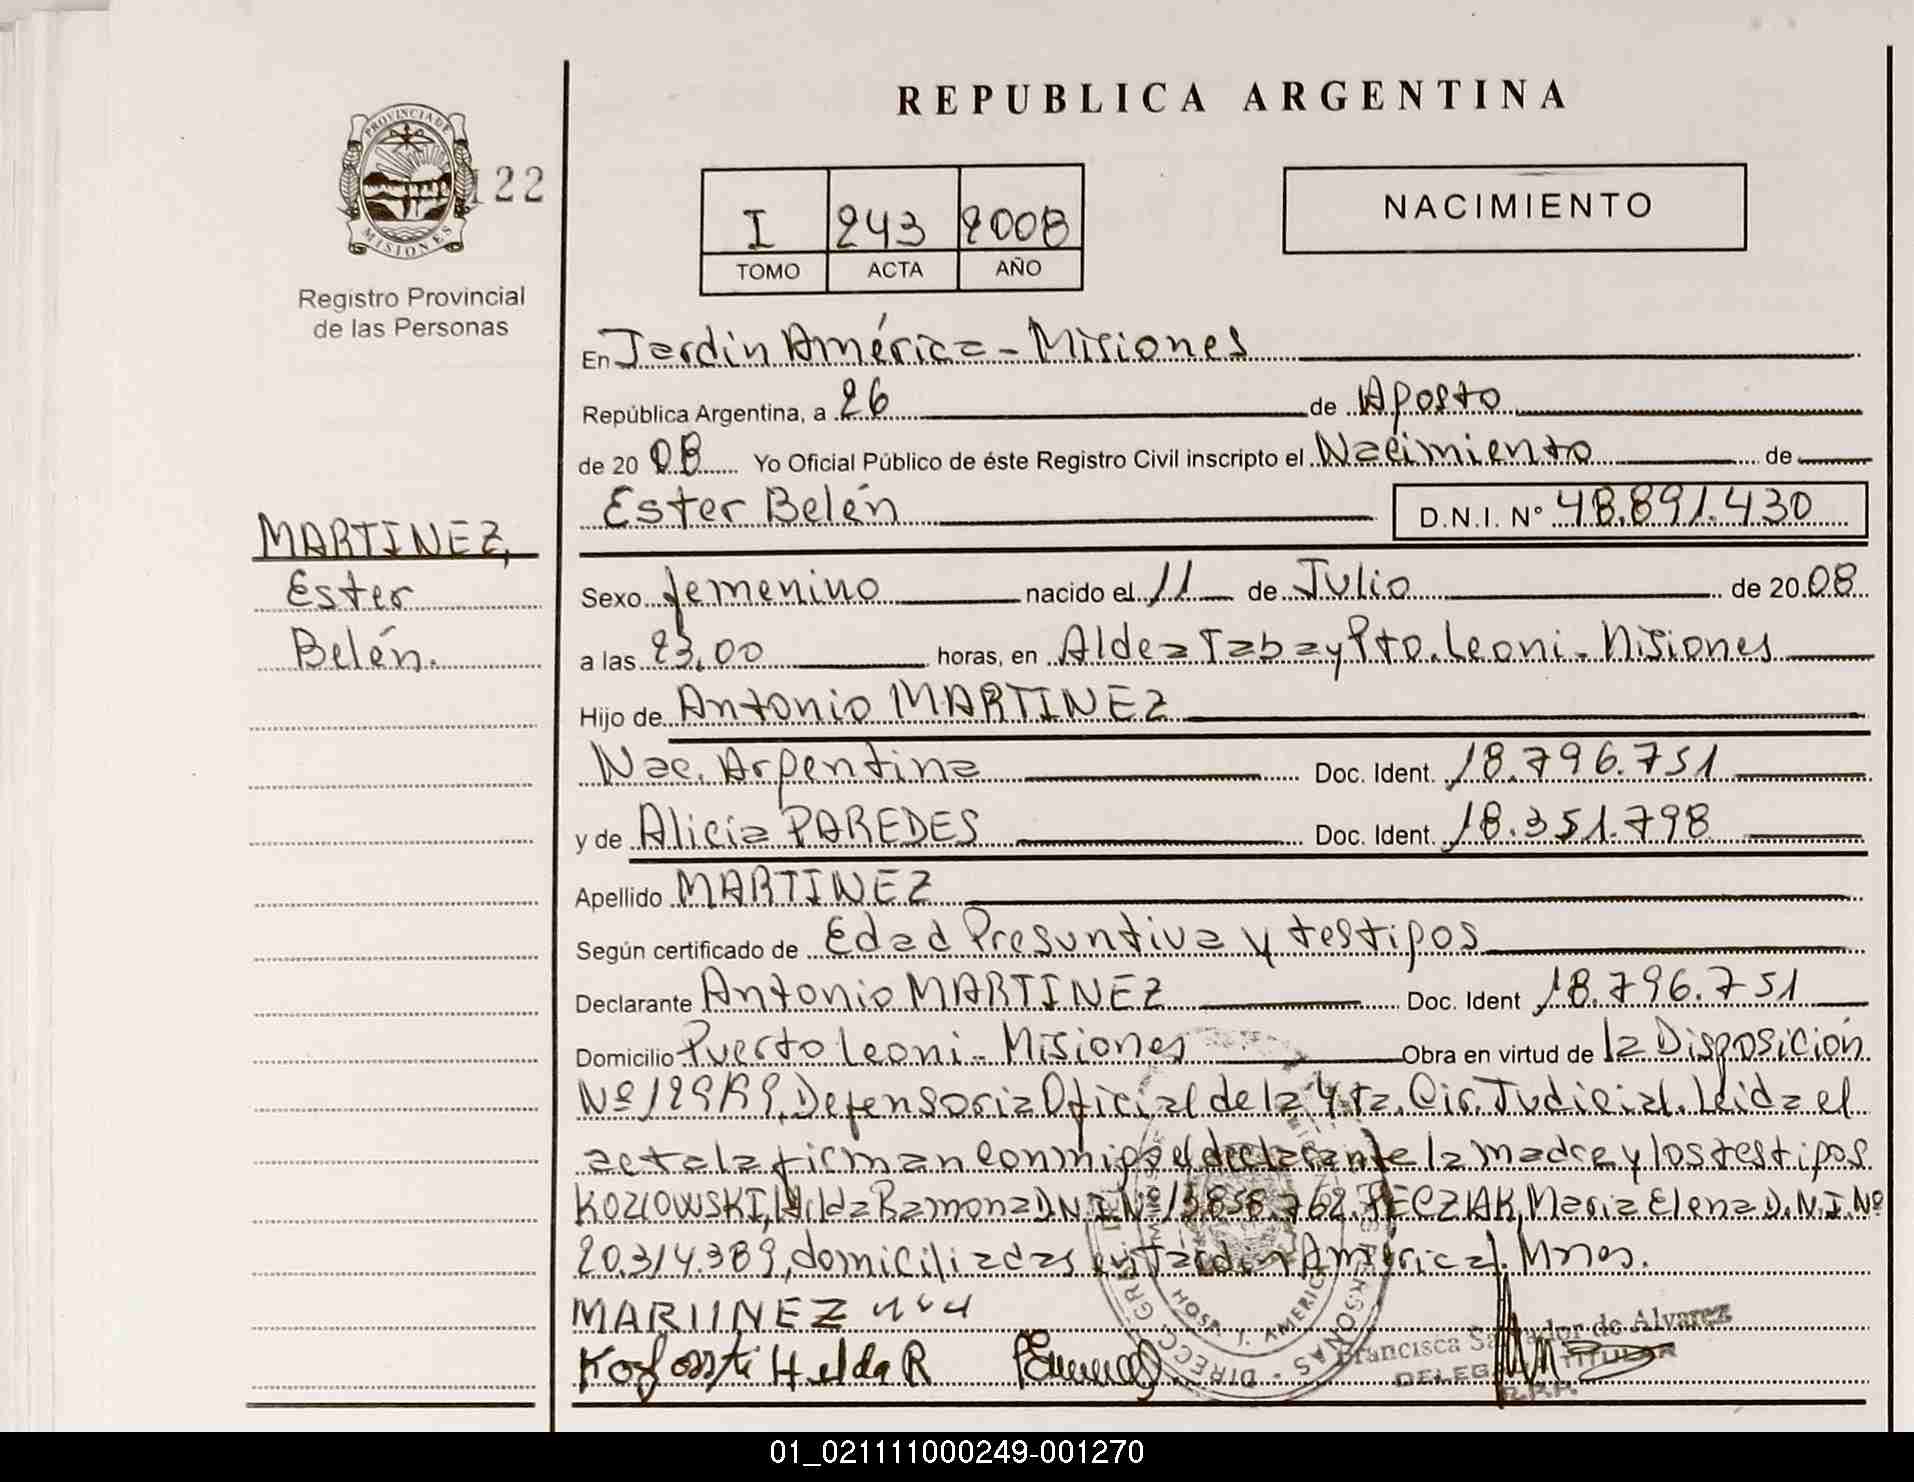 REPUBLICA ARGENTINA
PROVINCIA DE
MISIONES
122
Registro Provincial
de las Personas
I 243 2008
TOMO ACTA AÑO
NACIMIENTO
En Jardín América - Misiones
República Argentina, a 26 de Agosto
de 20 08 Yo Oficial Público de éste Registro Civil inscripto el Nacimiento de
Ester Belén D.N.I. N° 48.891.430
MARTINEZ,
Ester
Belén.
Sexo femenino nacido el 11 de Julio de 20 08
a las 23,00 horas, en Aldea Tabay Pto. Leoni - Misiones
Hijo de Antonio MARTINEZ
Nac. Argentina Doc. Ident. 18.796.751
y de Alicia PAREDES Doc. Ident. 18.351.798
Apellido MARTINEZ
Según certificado de Edad Presuntiva y testigos
Declarante Antonio MARTINEZ Doc. Ident 18.796.751
Domicilio Puerto Leoni - Misiones Obra en virtud de la Disposición
Nº 129/99, Defensoria Oficial de la 4ta. Cir. Judicial. Leida el
acta la firman conmigo el declarante la madre y los testigos
KOZLOWSKI, Hilda Ramona D.N.I. Nº 13.858.762. Maria Elena D.N.I. Nº
20.314.389, domiciliadas en Jardin América. Mnes.
MARIINEZ
Hilda R
Francisca de Alvarez
TITULAR
R.P.P.
01_021111000249-001270